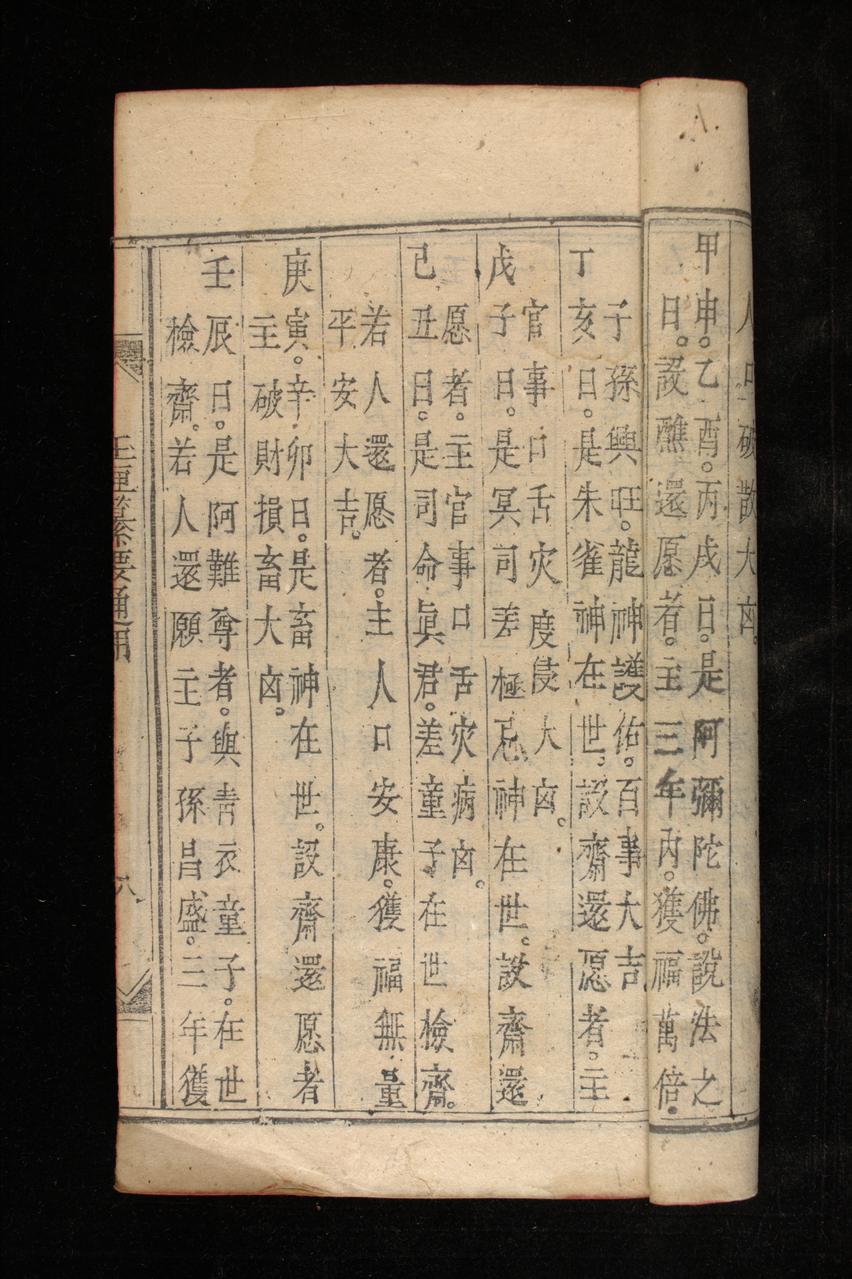 人口破散大凶。
甲申。乙酉。丙戌日。是阿彌陀佛。說法之
日。設醮還愿者。主三年內。獲福萬倍。
子孫興旺。龍神護佑。百事大吉
丁亥日。是朱雀神在世。設齋還愿者。主
官事口舌灾度侵大凶。
戊子日。是冥司差極忌神在世。設齋還
愿者。主官事口舌灾病凶。
己丑日。是司命眞君。差童子在世檢齋。
若人還愿者。主人口安康。獲福無量
平安大吉。
庚寅。辛卯日。是畜神在世。設齋還愿者
主破財損畜大凶。
壬辰日。是阿難尊者。與青衣童子。在世
檢齋。若人還願主子孫昌盛。三年獲
玉匣纂要通用
八